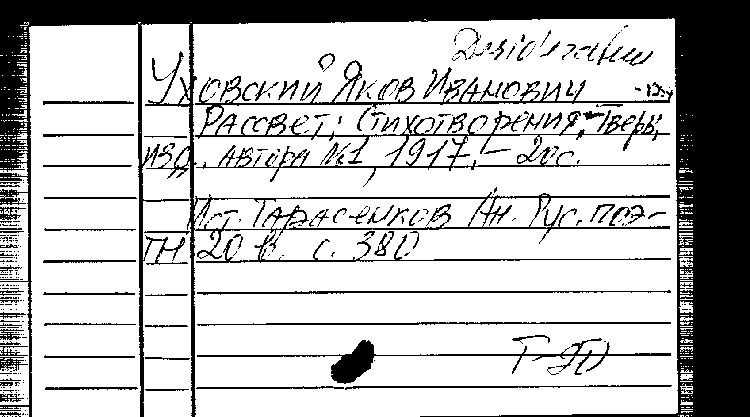 Desiderata
Уховский Яков Иванович
Рассвет: Стихотворения. - Тверь,
изд. автора №1, 1917. - 20с.
Ист. Тарасенков Ан. Рус. поэ-
ты 20 в. с. 380